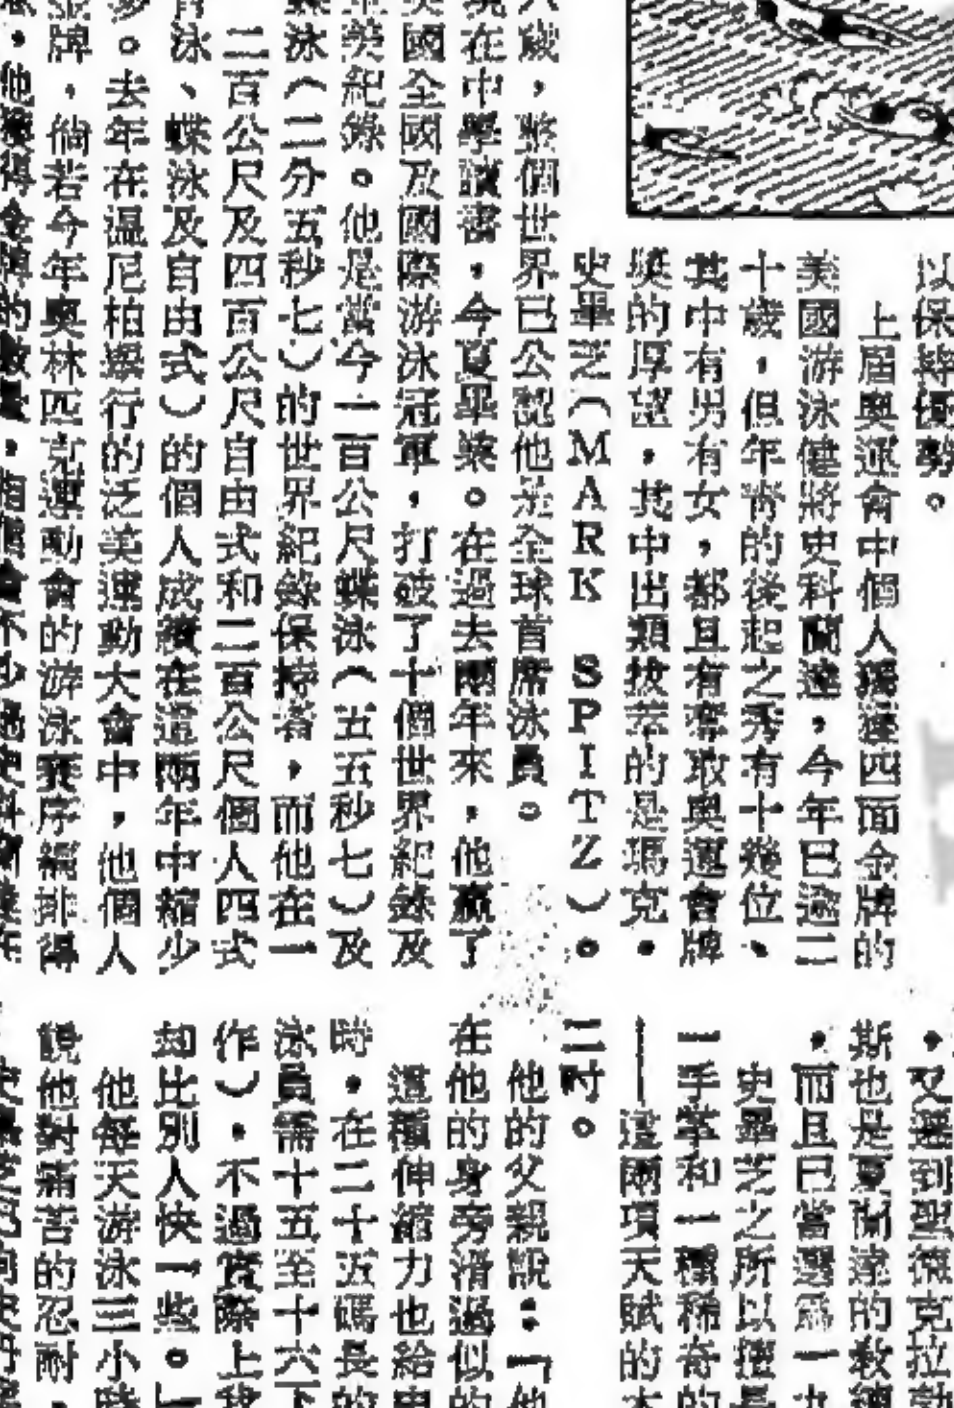 以保持優勢。
上屆奧運會中個人獨達四面金牌的
美國游泳健將史科蘭達，今年已逾二
十歲，但年青的後起之秀有十幾位、
其中有男有女，都且有奪取奧運會牌
獎的厚望，其中出類拔萃的是瑪克•
史畢芝（MARK SPITZ）。
歲，整個世界已公認他是全球首席泳員。
在中學讀書，今夏畢業。在過去兩年來，他贏了
國全國及國際游泳冠軍，打破了十個世界紀錄及
美紀錄。他是當今一百公尺蝶泳（五五秒七）及
泳（二分五秒七）的世界紀錄保持者，而他在一
二百公尺及四百公尺自由式和二百公尺個人四式
泳、蝶泳及自由式）的個人成績在這兩年中縮少
。去年在溫尼柏舉行的泛美運動大會中，他個人
牌，倘若今年奧林匹克運動會的游泳賽序編排得
，他獲得金牌的數量，相信會不少過史科蘭達在
，又遷到聖德克拉
斯也是夏蘭達的教練
，而且已當選為一九
史畢芝之所以擅長
一手掌和一種稀奇的
——這兩項天賦的本
二吋。
他的父親說：「他
在他的身旁滑過似的
這種伸縮力也給史
時，在二十五碼長的
泳員需十五至十六下
作），不過實際上
却比別人快一些。」
他每天游泳三小時
說他對痛苦的忍耐，